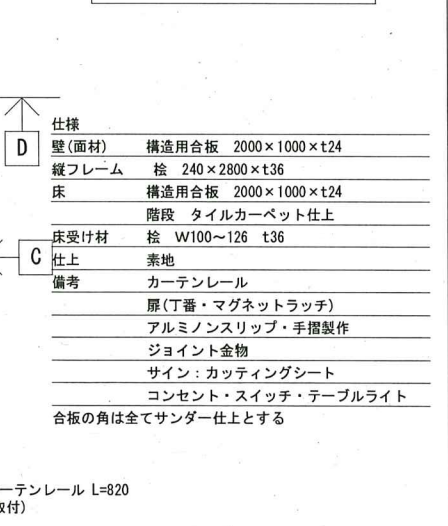 仕様
D
壁(面材) 構造用合板 2000×1000×t24
縦フレーム 桧 240×2800×t36
床 構造用合板 2000×1000×t24
階段 タイルカーペット仕上
床受け材 桧 W100～126 t36
C
仕上 素地
備考 カーテンレール
扉(丁番・マグネットラッチ)
アルミノンスリップ・手摺製作
ジョイント金物
サイン：カッティングシート
コンセント・スイッチ・テーブルライト
合板の角は全てサンダー仕上とする
ーテンレール L=820
取付)